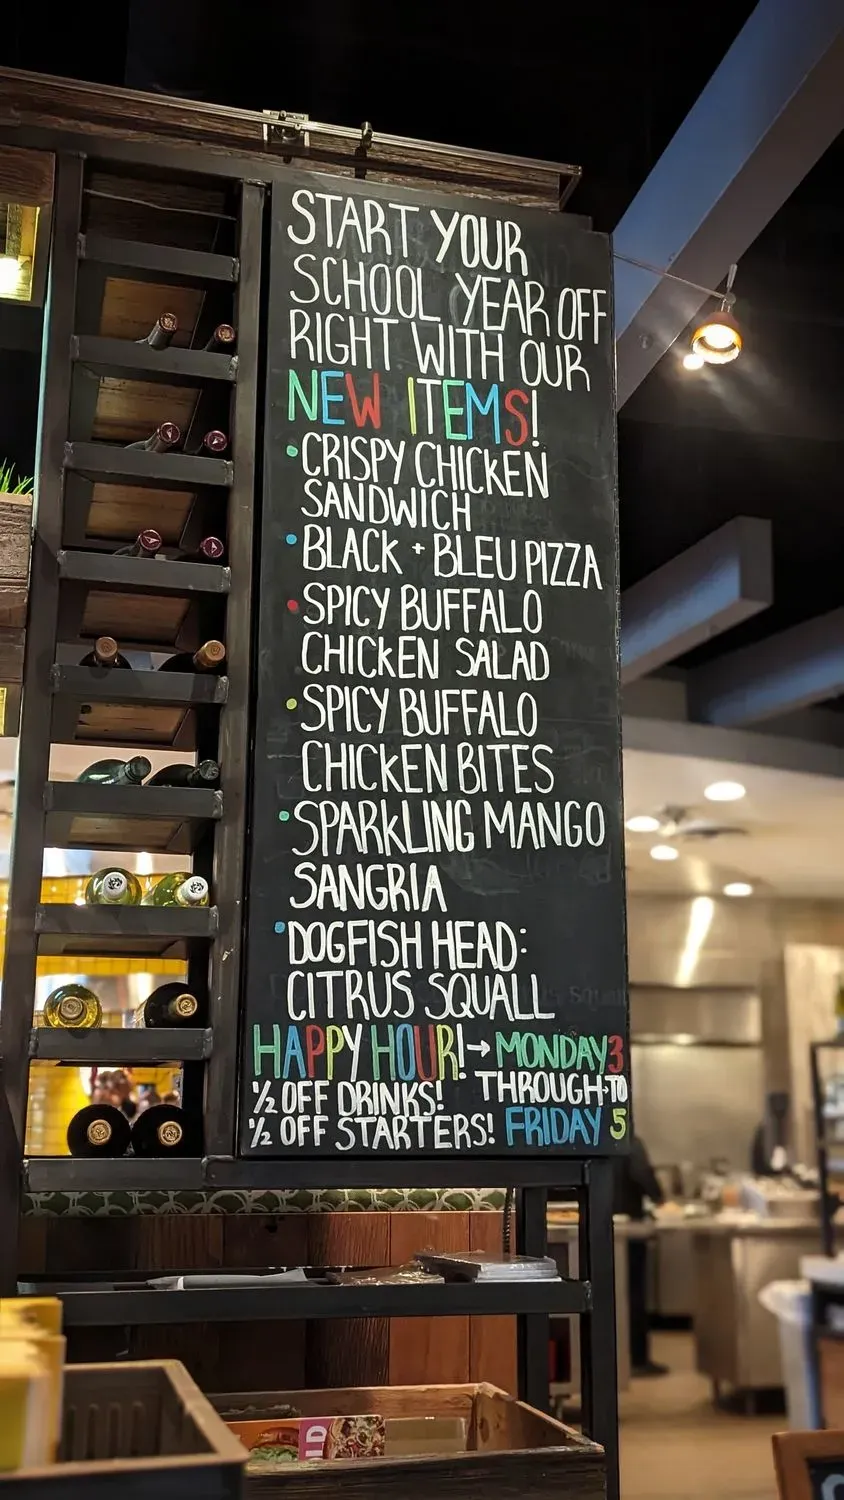 START YOUR
SCHOOL YEAR OFF
RIGHT WITH OUR
NEW ITEMS!
• CRISPY CHICKEN
SANDWICH
• BLACK + BLEU PIZZA
• SPICY BUFFALO
CHICKEN SALAD
• SPICY BUFFALO
CHICKEN BITES
• SPARKLING MANGO
SANGRIA
• DOGFISH HEAD:
CITRUS SQUALL
HAPPY HOUR! → MONDAY 3
½ OFF DRINKS! THROUGH • TO
½ OFF STARTERS! FRIDAY 5